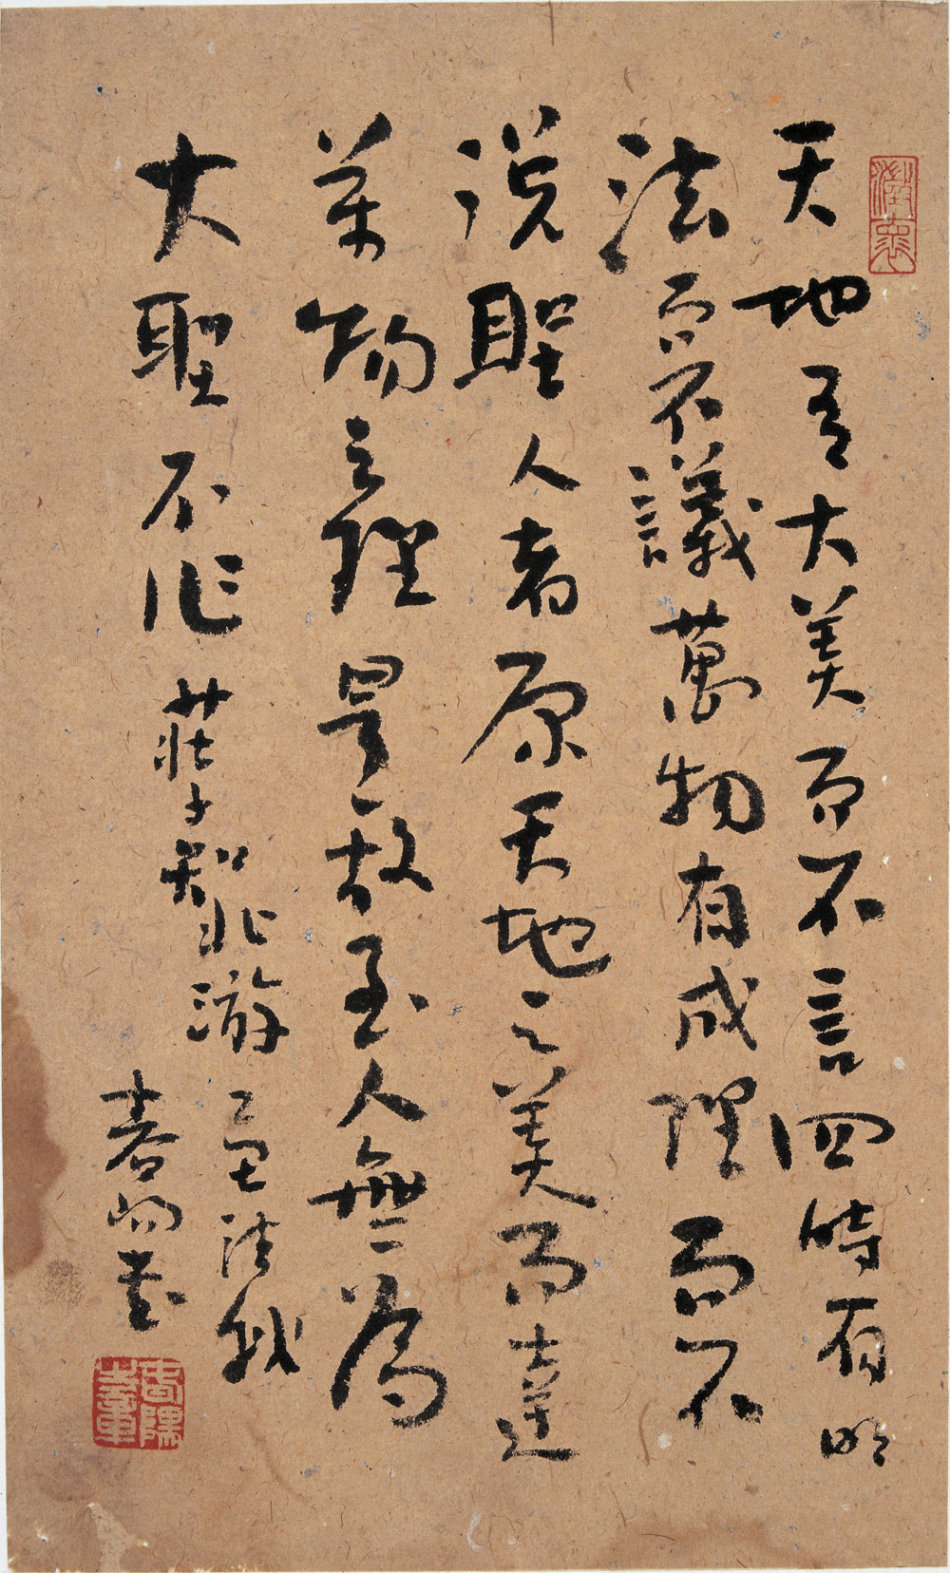 天地有大美而不言四時有明
法而不議萬物有成理而不
说聖人者原天地之美而達
萬物之理是故至人無為
大聖不作
莊子知北游